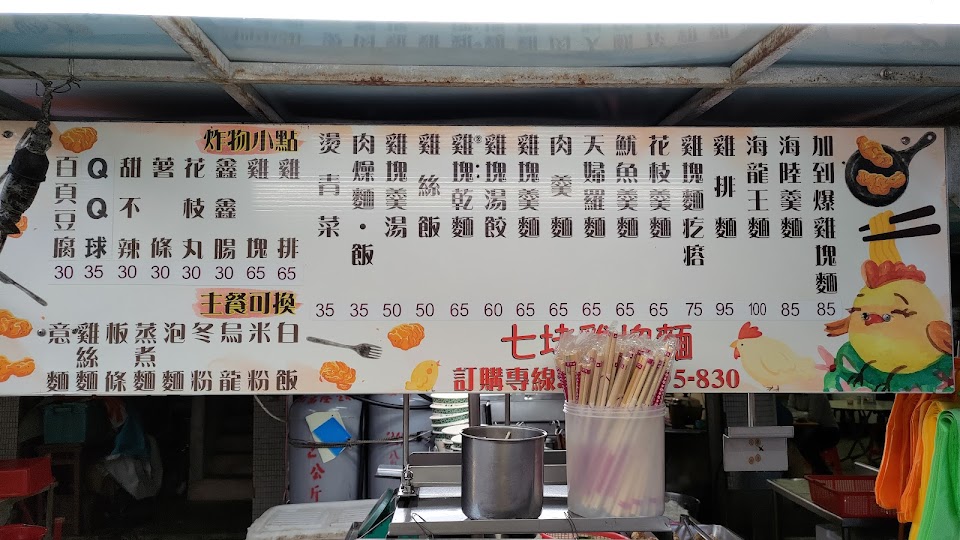 加到爆雞塊麵
85
海陸羹麵
85
海龍王麵
100
雞排麵
95
雞塊麵疙瘩
75
花枝羹麵
65
魷魚羹麵
65
天婦羅麵
65
肉羹麵
65
雞塊羹麵
65
雞塊湯餃
60
雞塊乾麵
65
雞絲飯
50
雞塊羹湯
50
肉燥麵・飯
35
燙青菜
35
炸物小點
雞排
65
雞塊
65
鑫鑫腸
30
花枝丸
30
薯條
30
甜不辣
30
QQ球
35
百頁豆腐
30
主餐可換
白飯
米粉
烏龍
冬粉
泡麵
蒸煮麵
板條
雞絲麵
意麵
七
麵
訂購專線
5-830
公斤